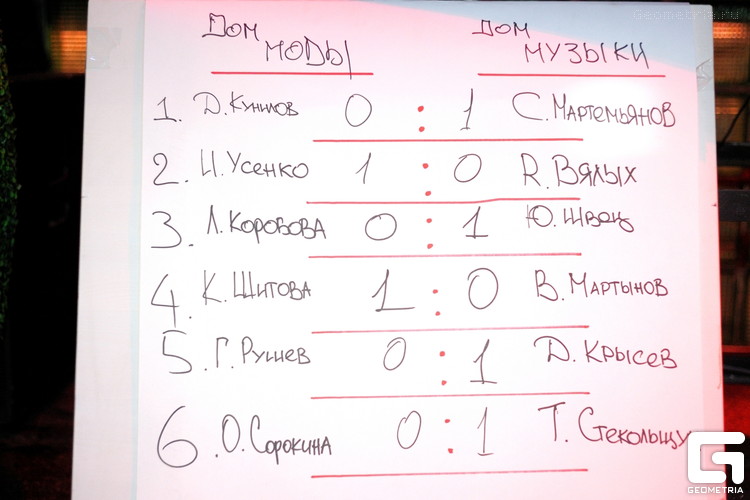 Geometria.ru
Дом моды Дом музыки
1. Д. Кунилов 0 : 1 С. Мартемьянов
2. И. Усенко 1 : 0 Я. Вялых
3. Л. Коробова 0 : 1 Ю. Швец
4. К. Шитова 1 : 0 В. Мартынов
5. Г. Рушев 0 : 1 Д. Крысев
6. О. Сорокина 0 : 1 Т.
GEOMETRIA